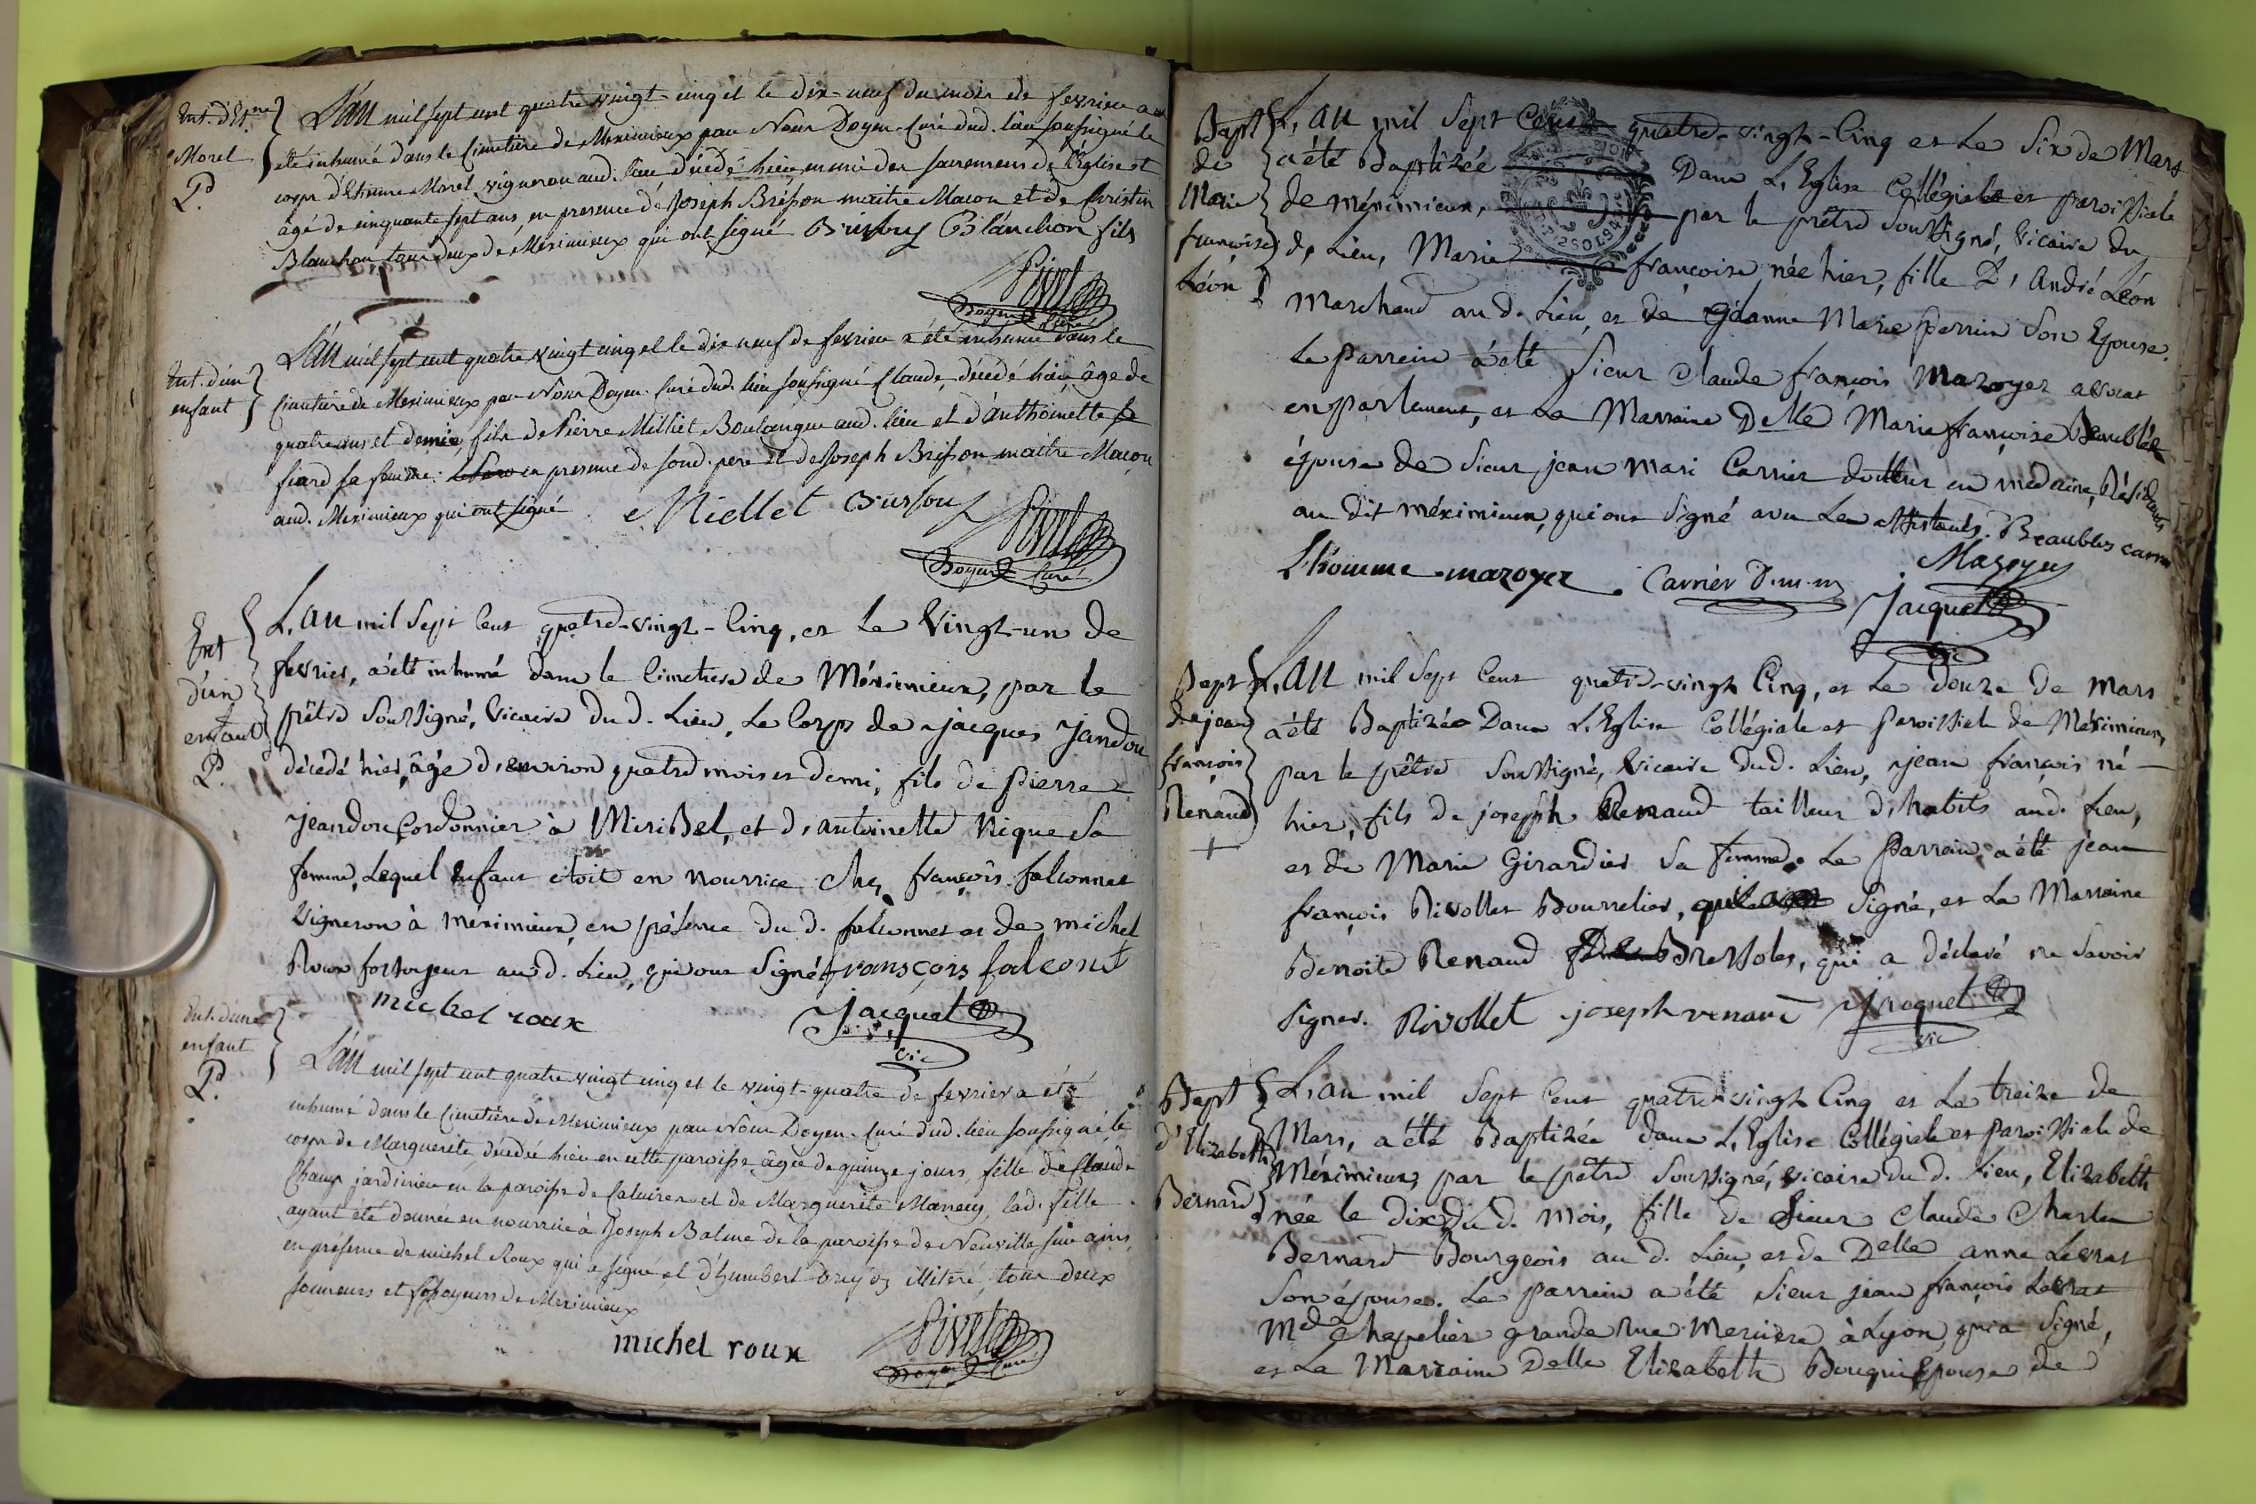 Ent. d'Et.ne
Morel
P.d
L'an mil sept cent quatre vingt cinq et le dix-neuf du mois de fevrier a
été inhumé dans le Cimetière de Meximieux par Nous Doyen-Curé dud. lieu soussigné le
corps d'Etienne Morel vigneron aud. lieu décédé hier, muni des sacremens de l'Eglise et
âgé de cinquante sept ans, en presence de Joseph Brisson maitre Macon et de Christin
Blanchon tous deux de Meximieux qui ont signé Brisson Blanchon fils
Doyen Curé
Ent. d'un
enfant
L'an mil sept cent quatre vingt cinq et le dix neuf de fevrier a été inhumé dans le
Cimetière de Meximieux par Nous Doyen-Curé dud. lieu soussigné Claude, décédé hier, âgé de
quatre ans et demie, fils de Pierre Milliet Boulanger aud. lieu et d'anthoinette
sa femme: en presence de sond. pere et de Joseph Brisson maitre Macon
aud. Meximieux qui ont signé Miellet Brisson
Doyen Curé
Ent
d'un
enfant
P.d
L'an mil Sept Cent quatre-vingt-Cinq, et Le Vingt-un de
fevrier, a été inhumé dans le Cimetiere de Méximieux, par le
prêtre Soussigné, Vicaire du d. Lieu, Le Corps de jacques Jandon
décédé hier, âgé d'environ quatre mois et demi, fils de pierre
jeandon Cordonnier à MiriBel, et d'antoinette Nique Sa
femme, Lequel Enfant étoit en nourrice chez françois falconnet
Vigneron à méximieux, en présence du d. falconnet et de michel
Roux fossoyeur aud. Lieu, qui ont Signé fransçois falconet
michel roux Jacquet
vic
Ent. d'une
enfant
P.d
L'an mil sept cent quatre vingt cinq et le vingt-quatre de fevrier a été
inhumé dans le Cimetière de Meximieux par Nous Doyen-Curé dud. lieu soussigné, le
corps de Marguerite, décédée hier en cette paroisse âgée de quinze jours, fille de Claude
Champ jardinier en la paroisse de Caluires et de Marguerite lad. fille
ayant été donnée en nourrice à Joseph Balme de la paroisse de Neuville sur ains,
en présence de michel Roux qui a signé et d'humbert illiteré, tous deux
sonneurs et fossoyeurs de Meximieux
michel roux
Doyen Curé
Bapt
de
Marie
françoise
Léon
L'an mil Sept Cent quatre-vingt-Cinq et Le Six de Mars
a été Baptizée Dans L'Eglise Collégiale et paroissiale
de méximieux, par le prêtre Soussigné, Vicaire du
d. Lieu, Marie françoise née hier, fille D'André Léon
Marchand au d. Lieu, et de Jéanne Marie perrin Son Epouse.
Le parrein a été Sieur Claude françois Mazoyer avocat
en parlement, et La Marraine Delle Marie françoise Beaublés
épouse de Sieur jean mari Carrier docteur en médecine, Résidants
au dit méximieux, qui ont Signé avec Les assistants. Beaubles carrier
Lhomme mazoyer Carrier D.m.m Mazoyer
Jacquet
vic
Bapt
de jean
françois
Renaud
+
L'an mil Sept Cent quatre-vingt Cinq, et Le Douze De mars
a été Baptizé Dans L'Eglise Collégiale et paroissiale de Méximieux,
par le prêtre Soussigné, Vicaire dud. Lieu, jean françois né
hier, fils de joseph Renaud tailleur d'habits aud. Lieu,
et de Marie Girardier Sa femme. Le parrein a été jean
françois Rivollet Bourrelier, Signé, et La Marraine
Benoite Renaud Bressoles, qui a déclaré ne Savoir
Signer. Rivollet joseph renaud Jacquet
vic
Bapt
d'Elizabeth
Bernard
L'an mil Sept Cent quatre vingt Cinq et Le treize de
Mars, a été Baptizée dans L'Eglise Collégiale et paroissiale de
Méximieux, par le prêtre Soussigné, vicaire du d. Lieu, Elizabeth
née le Dix du d. mois, fille de Sieur Claude Charles
Bernard Bourgeois au d. Lieu, et de Delle anne Levrat
Son épouse. Le parrein a été Sieur jean françois Levrat
Md Chapelier grande Rue Merciere à Lyon, qui a Signé,
et La Marraine Delle Elizabeth Bouqui Epouse de